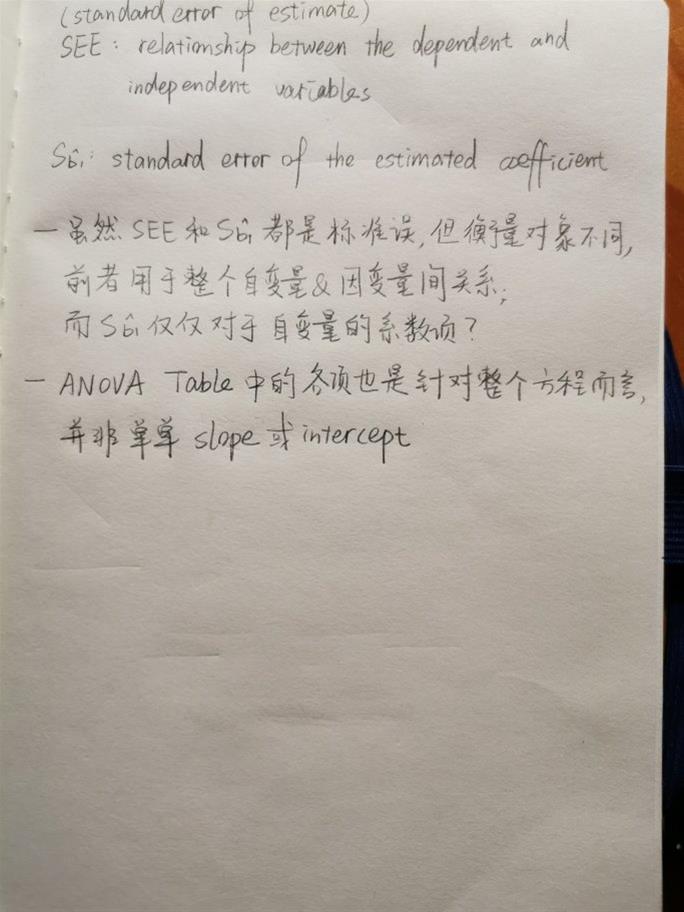 (standard error of estimate)
SEE: relationship between the dependent and
independent variables
Sb̂₁: standard error of the estimated coefficient
— 虽然 SEE 和 Sb̂₁ 都是标准误, 但衡量对象不同,
前者用于整个自变量 & 因变量间关系;
而 Sb̂₁ 仅仅对于自变量的系数项?
— ANOVA Table 中的各项也是针对整个方程而言,
并非单单 slope 或 intercept